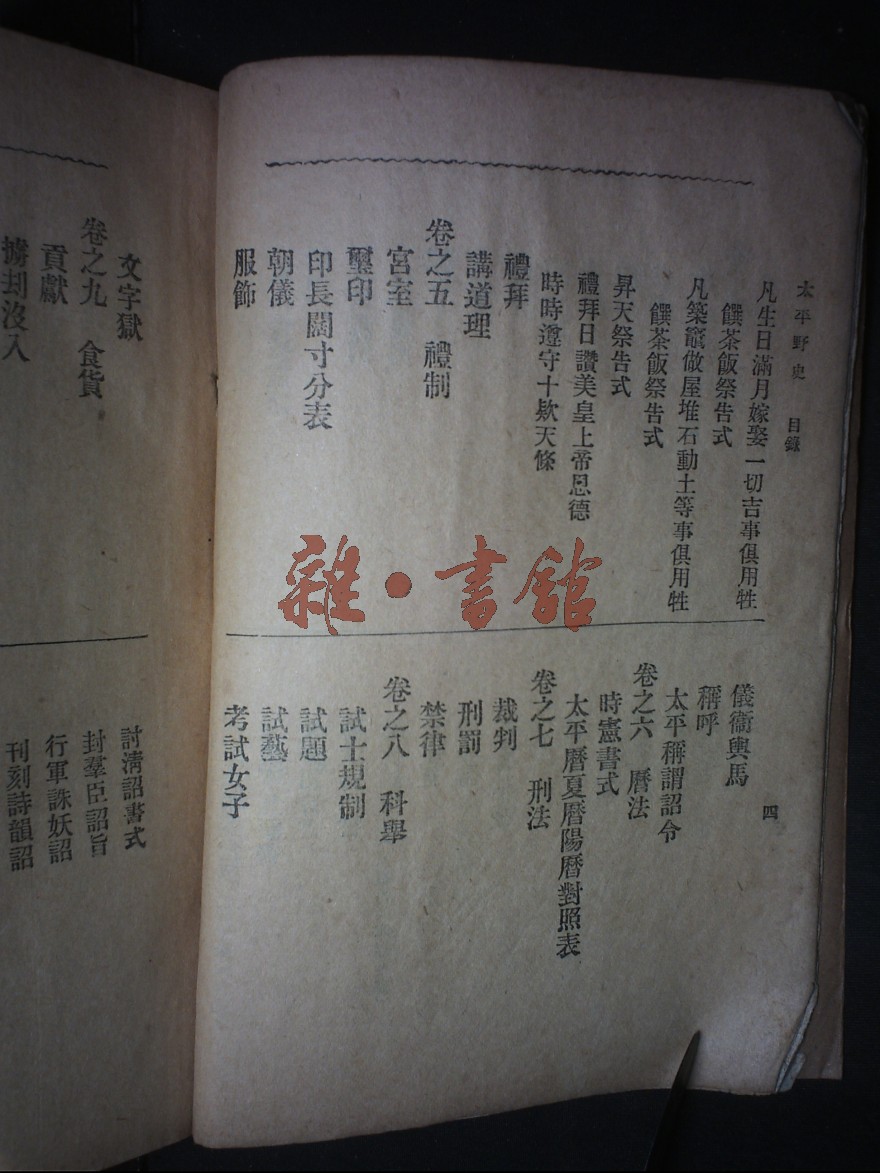 太平野史　目錄
四
凡生日滿月嫁娶一切吉事俱用牲
饌茶飯祭告式
凡築竈做屋堆石動土等事俱用牲
饌茶飯祭告式
昇天祭告式
禮拜日讚美皇上帝恩德
時時遵守十欵天條
禮拜
講道理
卷之五　禮制
宮室
璽印
印長闊寸分表
朝儀
服飾
儀衞輿馬
稱呼
太平稱謂詔令
卷之六　曆法
時憲書式
太平曆夏曆陽曆對照表
卷之七　刑法
裁判
刑罰
禁律
卷之八　科舉
試士規制
試題
試藝
考試女子
文字獄
卷之九　食貨
貢獻
擄刦沒入
討淸詔書式
封羣臣詔旨
行軍誅妖詔
刊刻詩韻詔
雜·書館